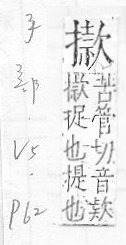 部
V5
P62
苦管切音款
捉也提也